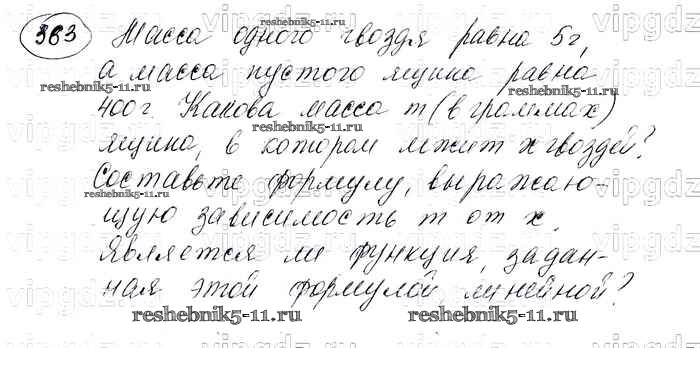 363 Масса одного гвоздя равна 5г,
reshebnik5-11.ru
а масса пустого ящика равна
reshebnik5-11.ru
reshebnik5-11.ru
400г. Какова масса m (в граммах)
reshebnik5-11.ru
ящика, в котором лежит x гвоздей?
Составьте формулу, выражаю-
reshebnik5-11.ru
щую зависимость m от x.
Является ли функция, задан-
ная этой формулой линейной?
reshebnik5-11.ru
reshebnik5-11.ru
vipgdz